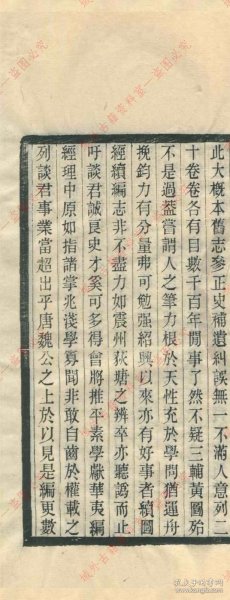 此大概本舊志參正史補遺糾誤無一不滿人意列二
十卷卷各有目數千百年閒事了然不疑三輔黃圖殆
不是過蓋嘗謂人之筆力根於天性充於學問猶運舟
挽鈞力有分量弗可勉强紹興以來亦有好事者續圖
經續編志非不盡力如震州荻塘之辨卒亦聽譌而止
吁談君誠良史才矣可多得會將推平素學獻華夷編
經理中原如指諸掌兆淺學寡聞非敢自齒於權載之
列談君事業當超出乎唐魏公之上於以見是編更數